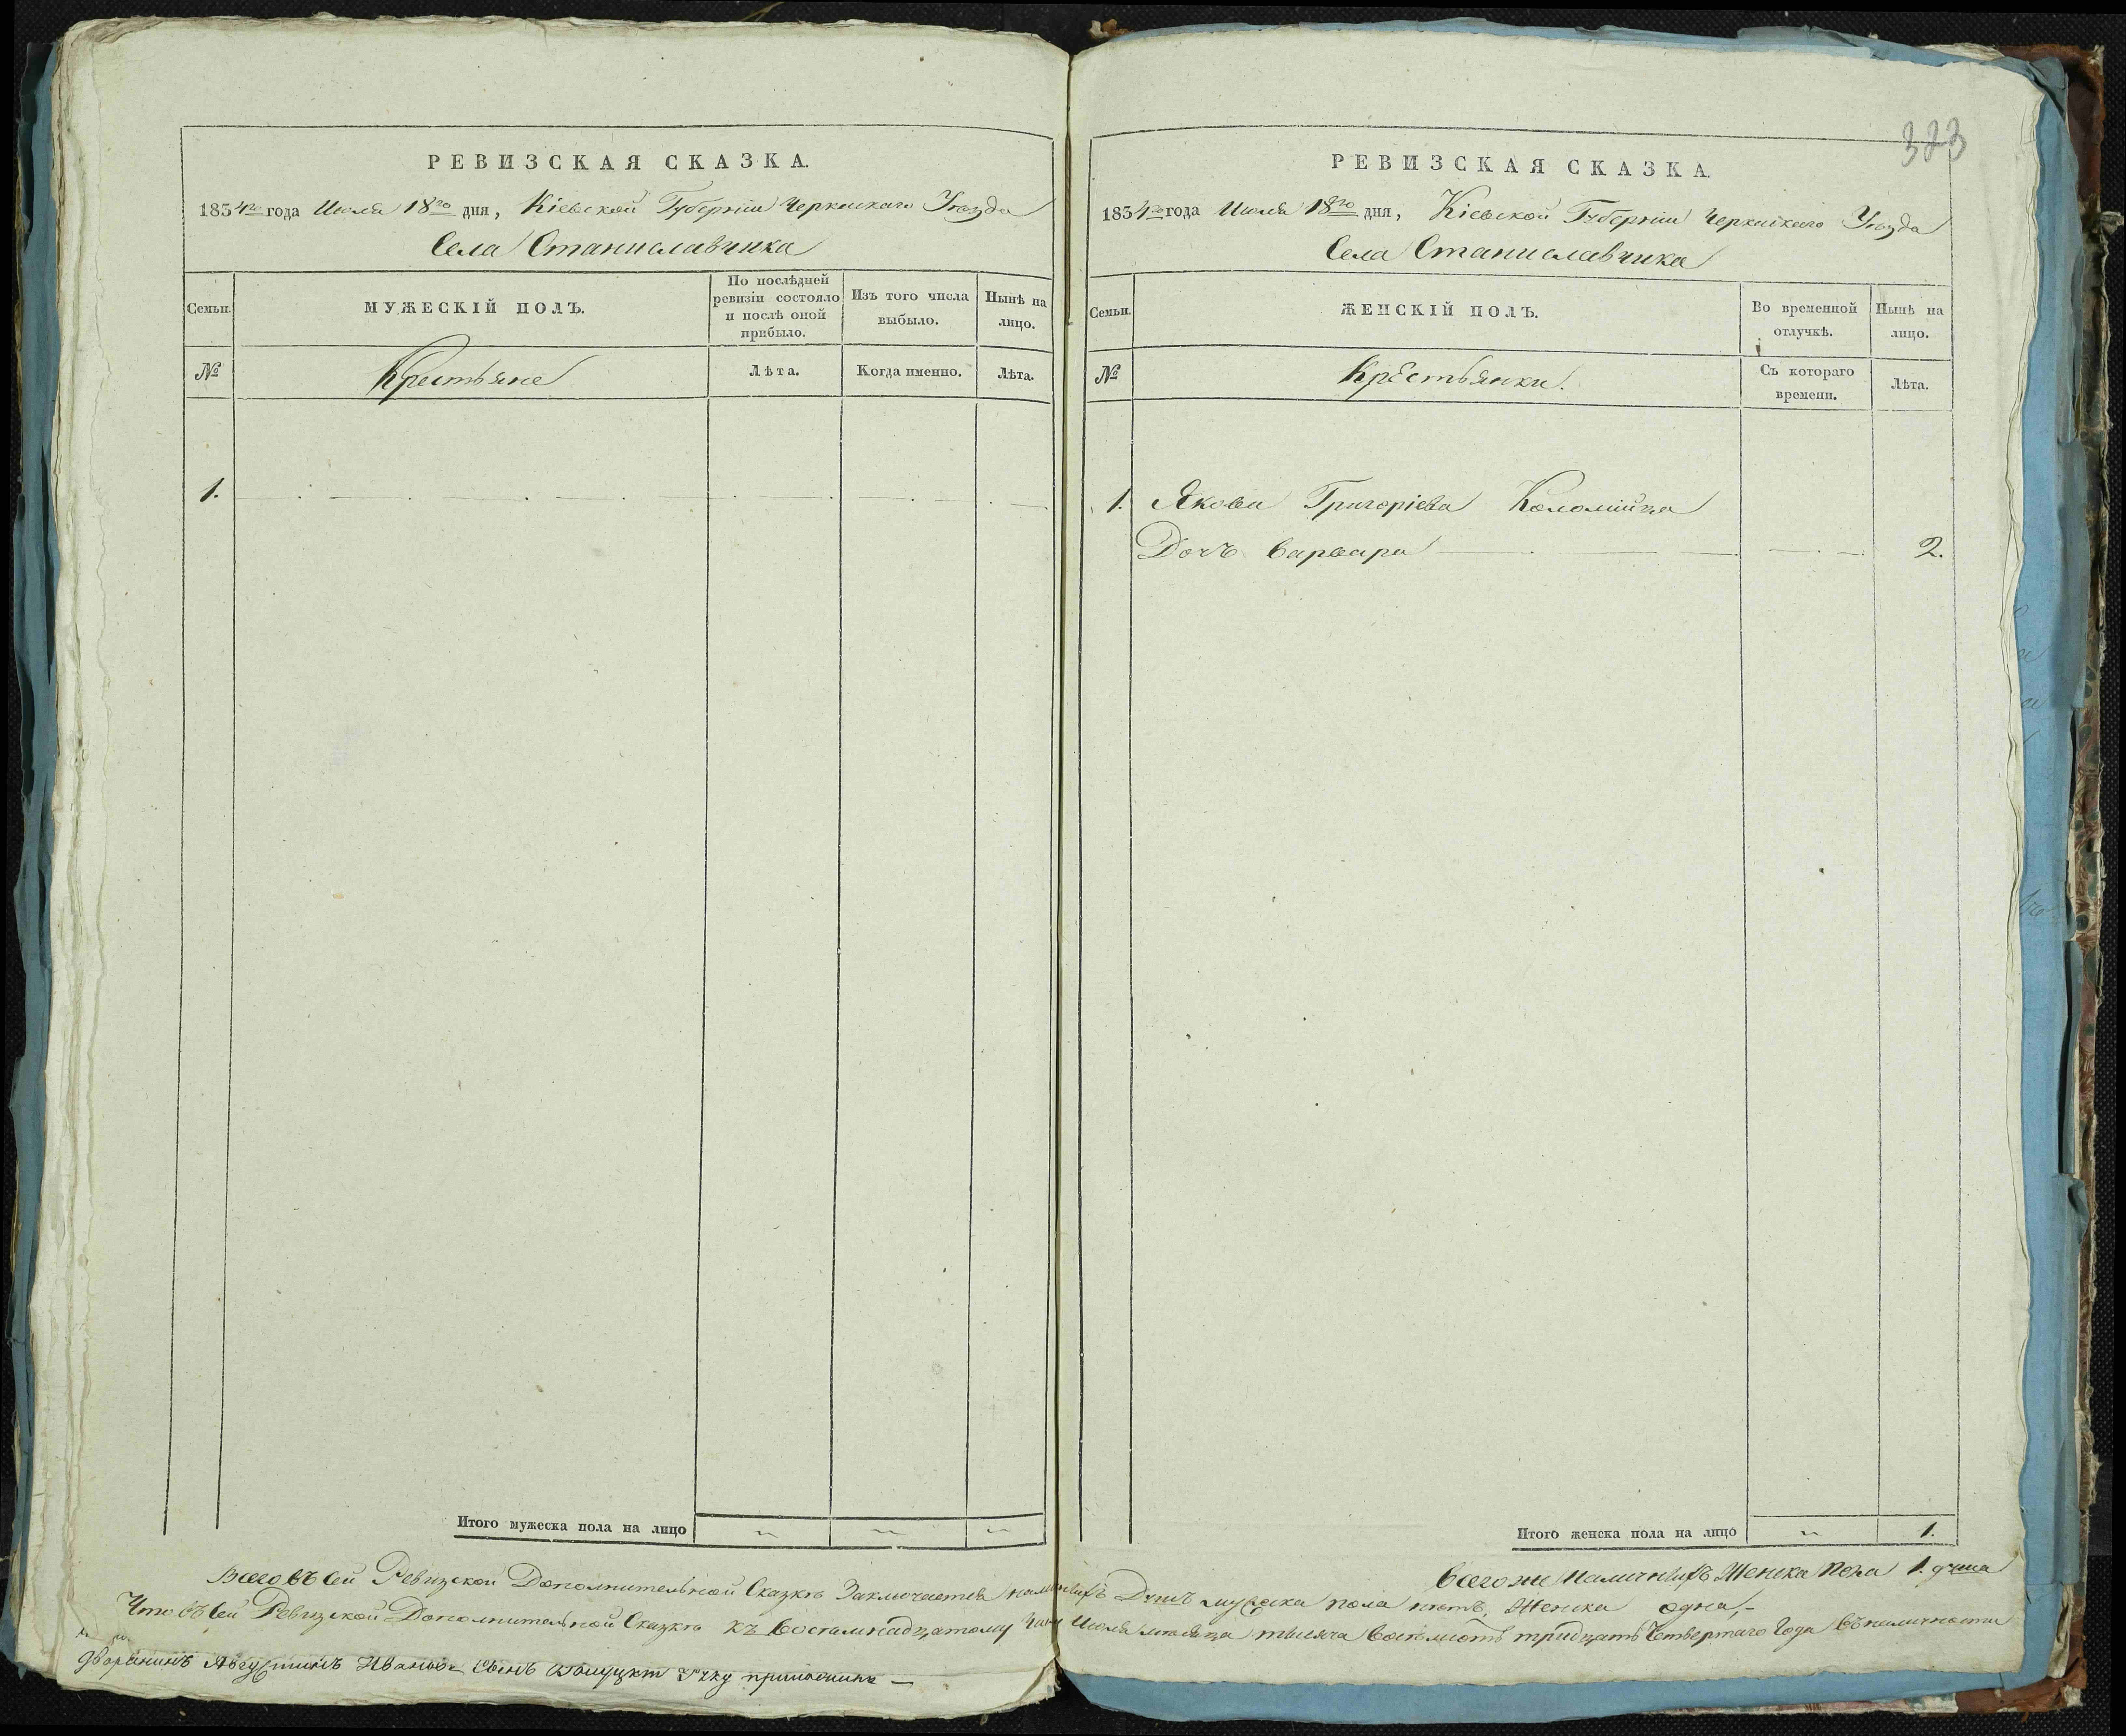 РЕВИЗСКАЯ СКАЗКА.
1834го года Июля 18го дня, Кіевской Губерніи Черкаскаго Уѣзда
Села Станиславчика
Семьи.
МУЖЕСКІЙ ПОЛЪ.
По послѣдней ревизіи состояло и послѣ оной прибыло.
Изъ того числа выбыло.
Нынѣ на лицо.
№
Крестьяне
Лѣта.
Когда именно.
Лѣта.
1.
Итого мужеска пола на лицо
323
РЕВИЗСКАЯ СКАЗКА.
1834го года Июля 18го дня, Кіевской Губерніи Черкаскаго Уѣзда
Села Станиславчика
Семьи.
ЖЕНСКІЙ ПОЛЪ.
Во временной отлучкѣ.
Нынѣ на лицо.
№
Крестьянки.
Съ котораго времени.
Лѣта.
1. Якова Григоріева Коломійца
Дочъ Варвара 2.
Итого женска пола на лицо 1.
Всего же Наличныхъ Женска Пола 1. душа
Всего въ сей Ревизской Дополнительной Сказкѣ Заключается наличныхъ Душъ мужеска пола нѣтъ, Женска одна,-
Что въ сей Ревизской Дополнительной Сказкѣ къ восемнадцатому Июля мѣсяца тысяча восемьсотъ тридцать Четвертаго Года въ наличности
дворянинъ Августинъ Ивановъ Сынъ руку приложилъ